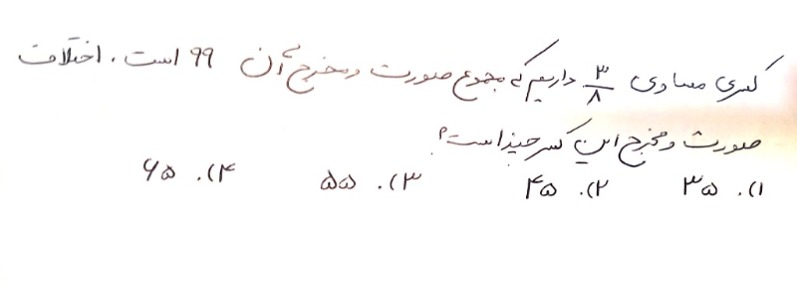 کسری مساوی ۳/۸ داریم که مجموع صورت و مخرج آن ۹۹ است. اختلاف
صورت و مخرج این کسر چیست؟
۱). ۳۵ ۲). ۴۵ ۳). ۵۵ ۴). ۶۵